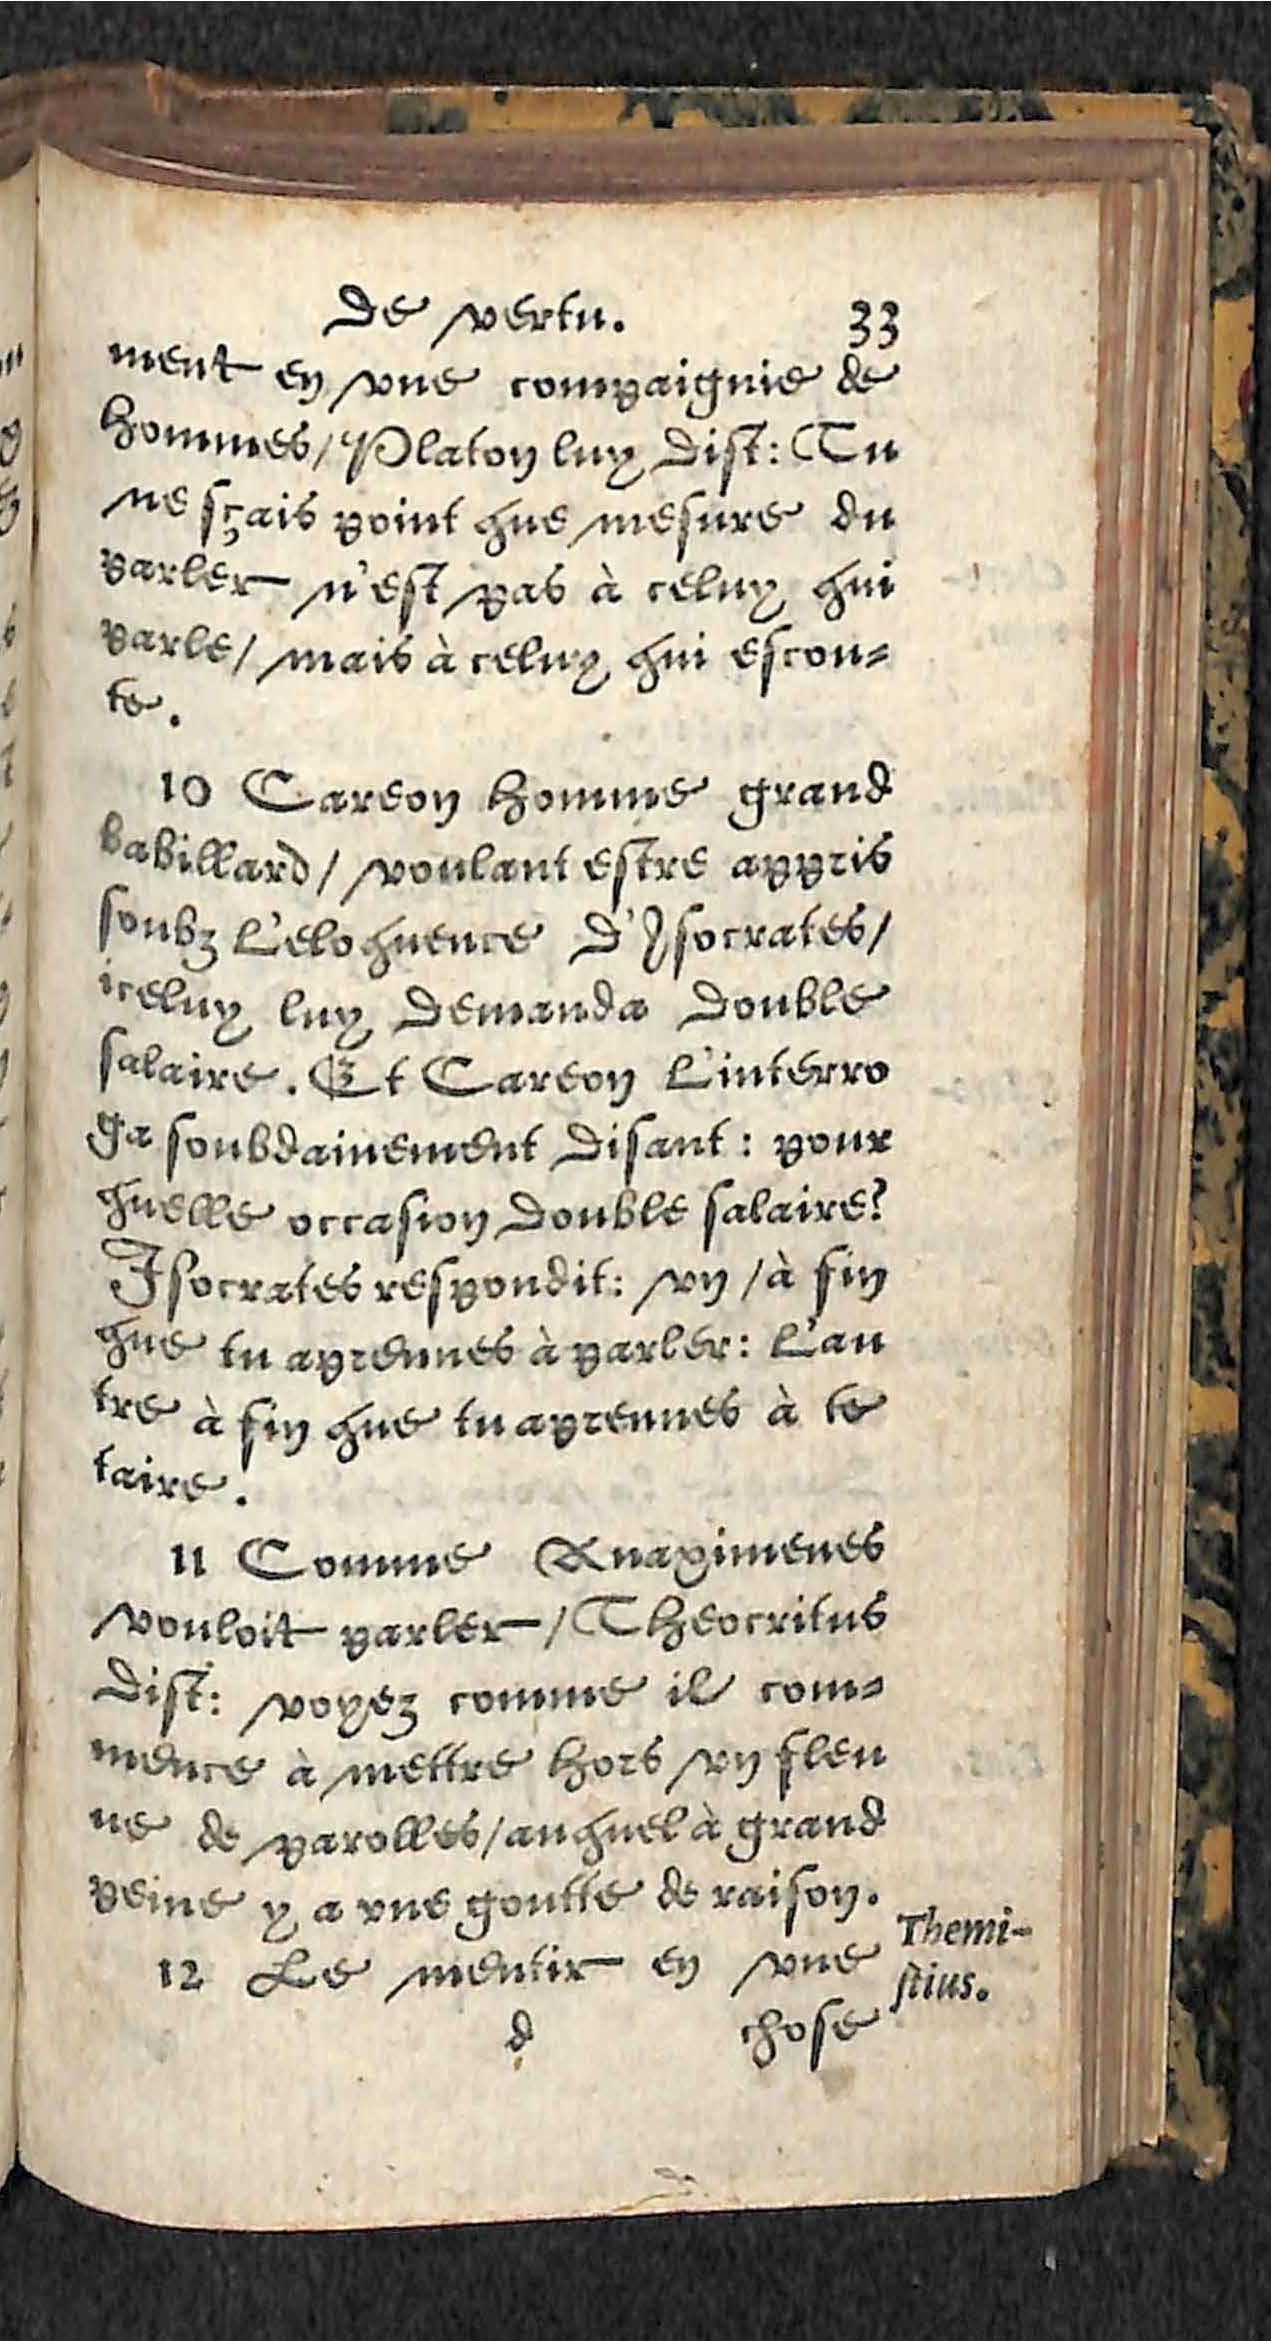 De vertu. 33
ment en vne compaignie de
hommes/ Platon luy dist: Tu
ne sçais point que mesure du
parler n'est pas à celuy qui
parle/ mais à celuy qui escou-
te.
10 Careon homme grand
babillard/ voulant estre appris
soubz l'eloquence d'Isocrates/
iceluy luy demanda double
salaire. Et Careon l'interro
ga soubdainement disant: pour
quelle occasion double salaire?
Isocrates respondit: vn/ à fin
que tu aprennes à parler: l'au
tre à fin que tu aprennes à te
taire.
11 Comme Anaximenes
vouloit parler/ Theocritus
dist: voyez comme il com-
mence à mettre hors vn fleu
ue de parolles/ auquel à grand
peine y a vne goutte de raison.
12 Le mentir en vne
Themi-
stius.
d chose